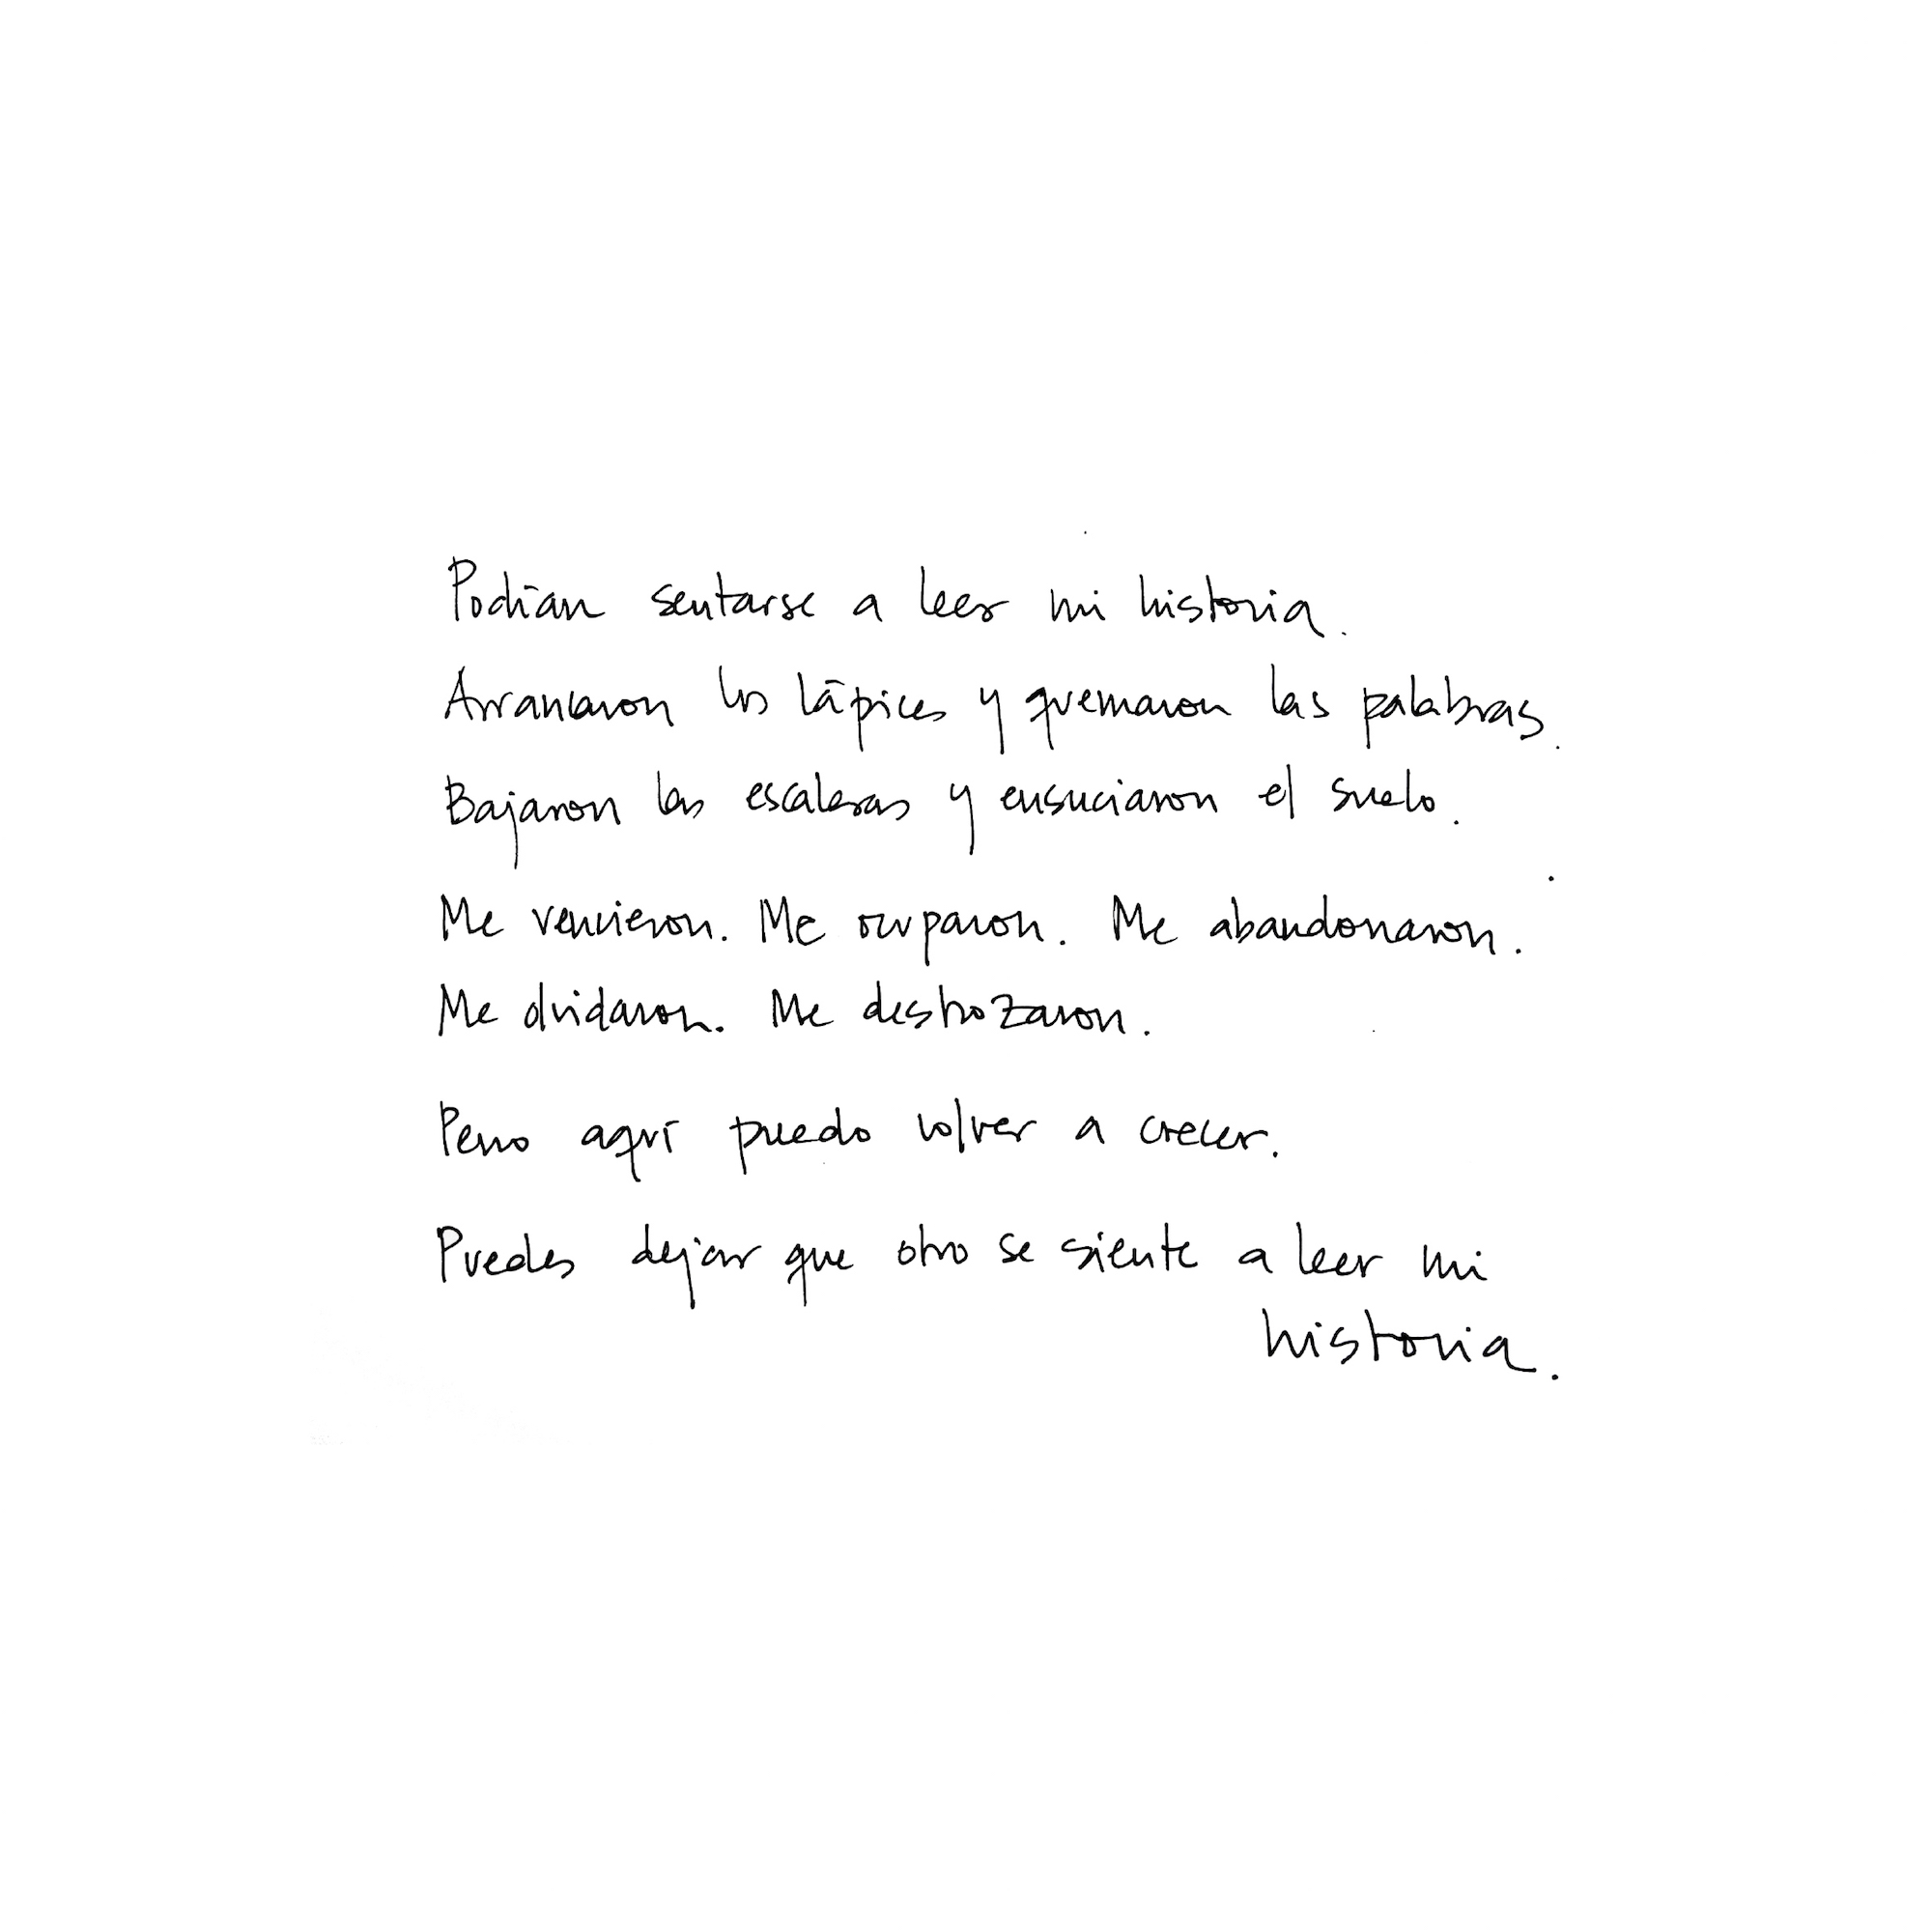 Podían sentarse a leer mi historia.
Arrancaron los lápices y quemaron las palabras.
Bajaron las escaleras y ensuciaron el suelo.
Me vencieron. Me ocuparon. Me abandonaron.
Me olvidaron. Me destrozaron.
Pero aquí puedo volver a crecer.
Puedes dejar que otro se siente a leer mi
historia.